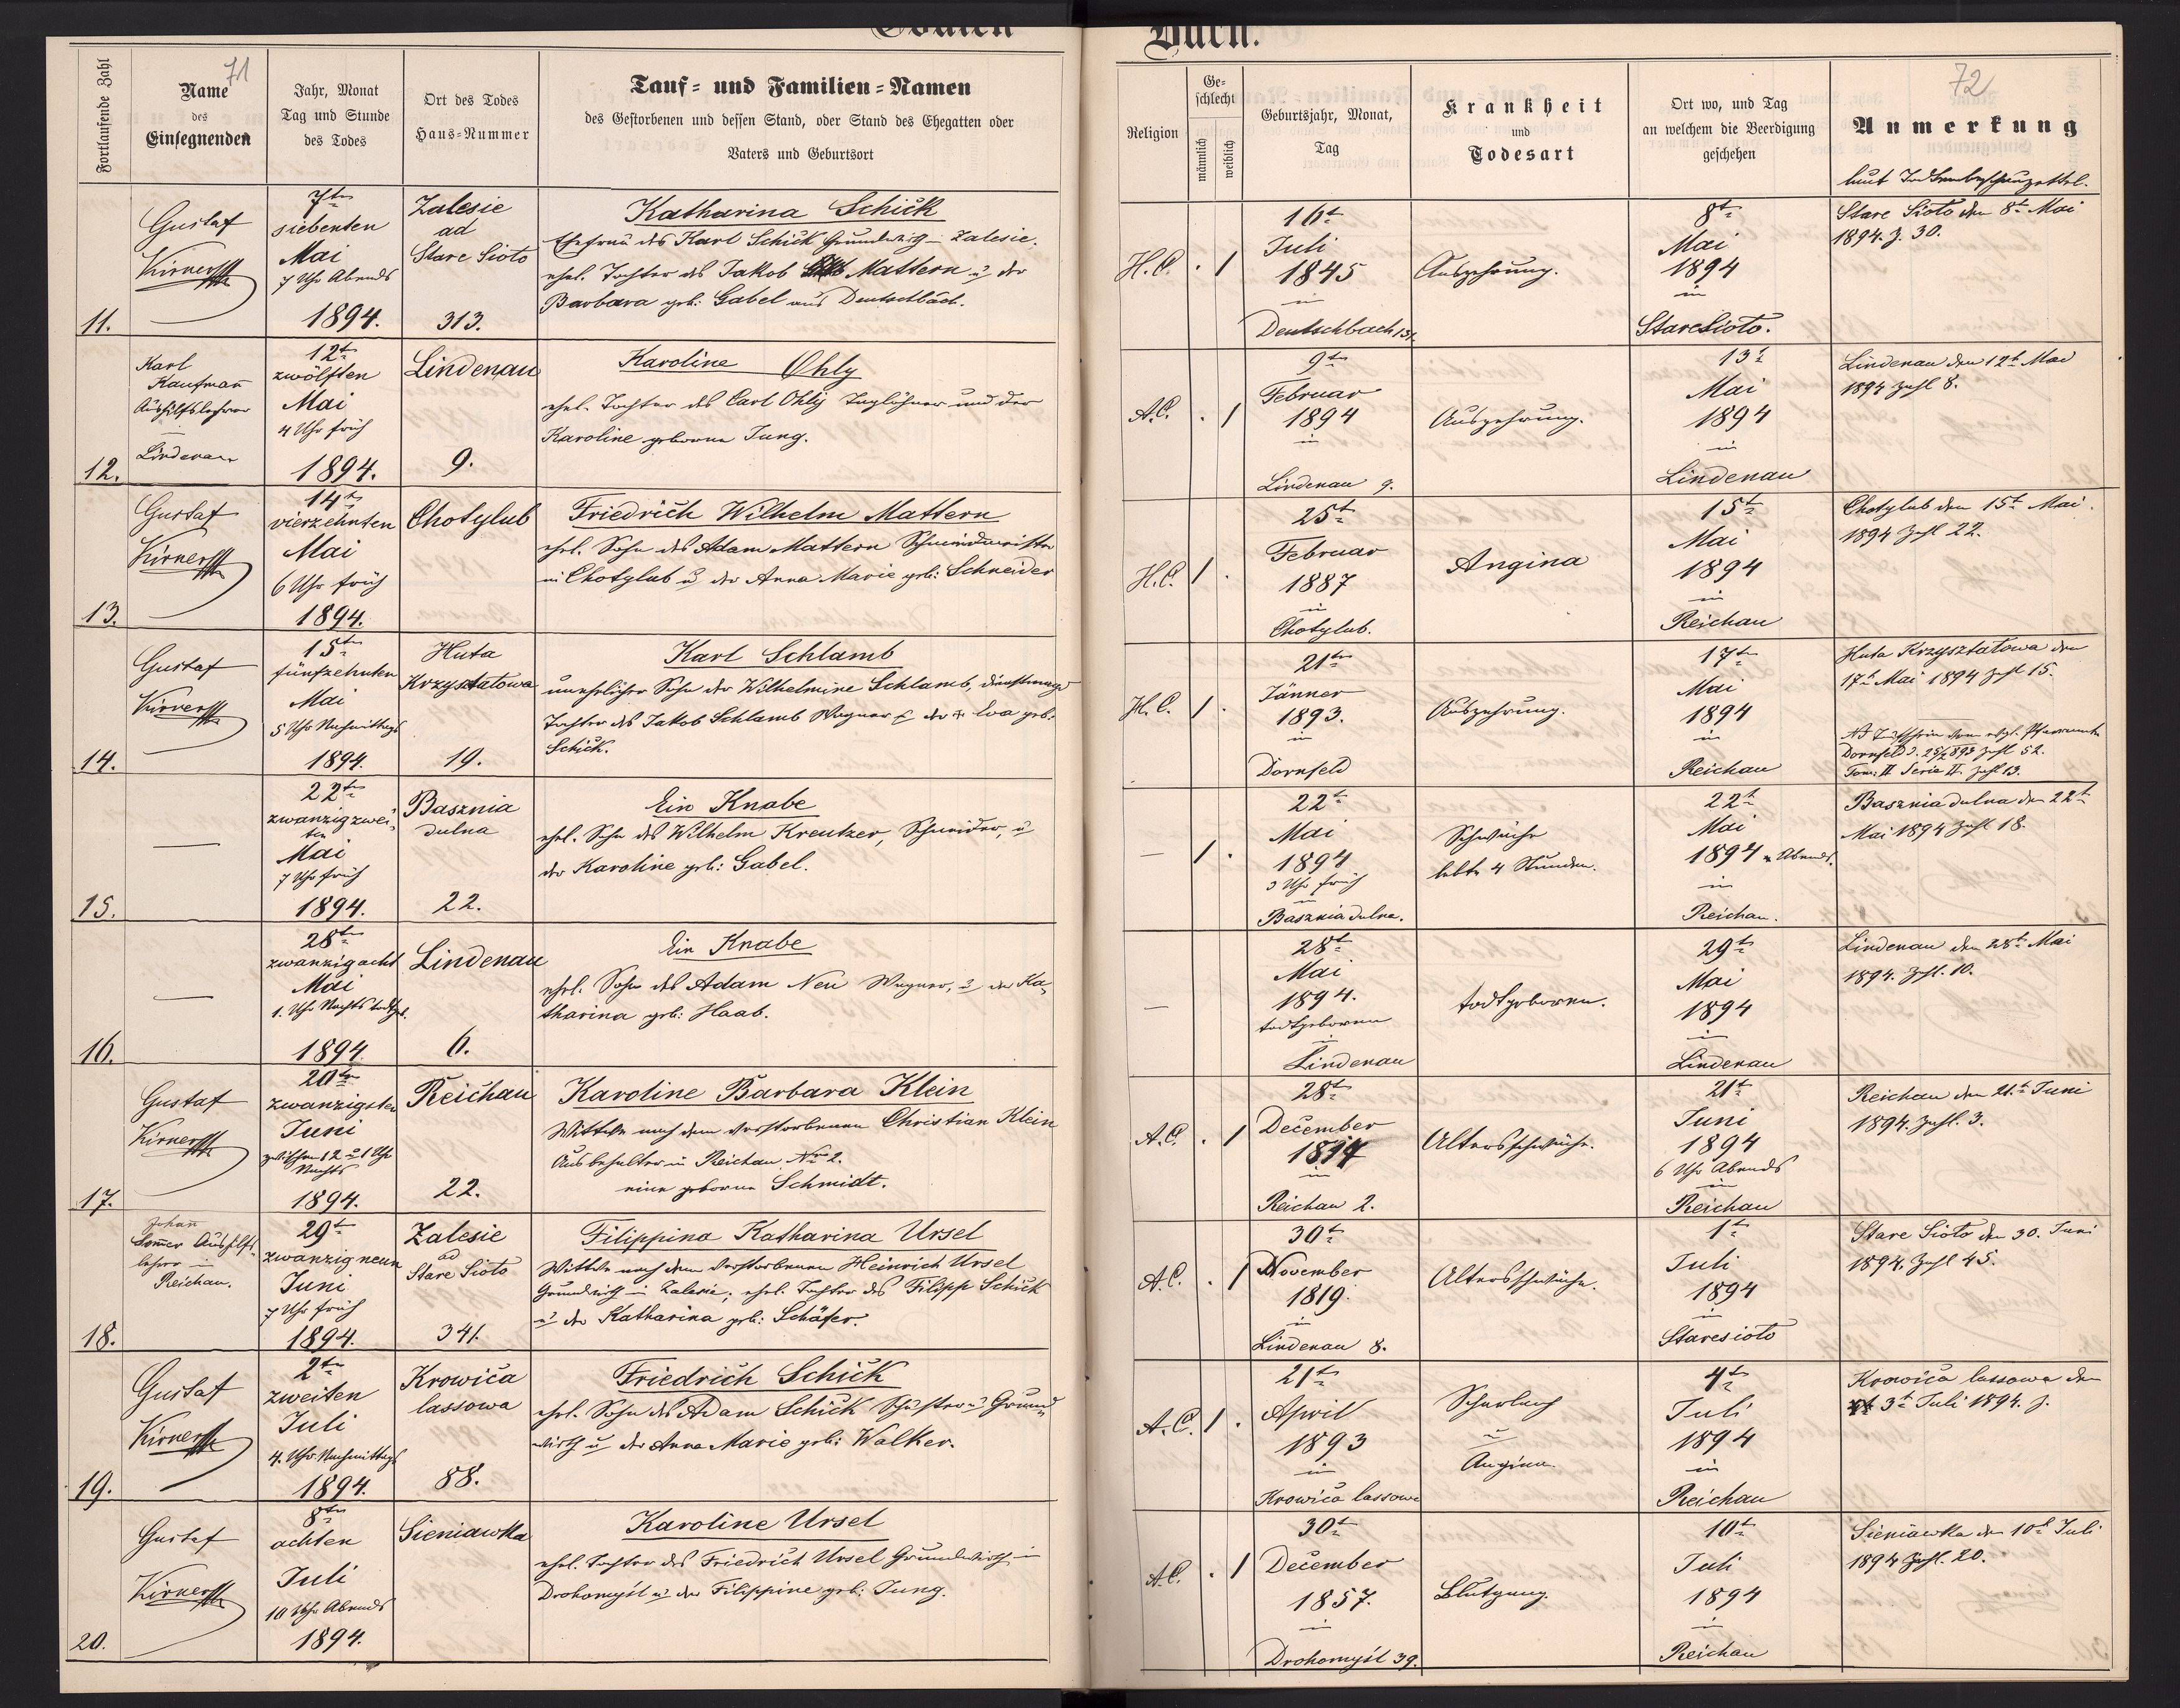 71
Fortlaufende Zahl
Name
des
Einsegnenden
Jahr, Monat
Tag und Stunde
des Todes
Ort des Todes
Haus-Nummer
Tauf- und Familien-Namen
des Gestorbenen und dessen Stand, oder Stand des Ehegatten oder
Vaters und Geburtsort
Buch.
72
Religion
Ge-
schlecht
männlich
weiblich
Geburtsjahr, Monat,
Tag
Krankheit
und
Todesart
Ort wo, und Tag
an welchem die Beerdigung
geschehen
Anmerkung
laut Todtenbeschauzettel.
11.
Gustaf
Kirner
7ten
siebenten
Mai
7 Uhr Abends
1894.
Zalesie
ad
Stare Sioto
313.
Katharina Schick
Ehefrau des Karl Schick Grundwirth in Zalesie.
ehel. Tochter des Jakob Mattern u der
Barbara geb: Gabel aus Deutschbach.
H.C. . 1
16t
Juli
1845
in
Deutschbach 13.
Auszehrung.
8t
Mai
1894
in
Stare Sioto.
Stare Sioto den 8t Mai
1894. Z. 30.
12.
Karl
Kaufmann
Aushilfslehrer
Lindenau
12t
zwölften
Mai
4 Uhr früh
1894.
Lindenau
9.
Karoline Ohly
ehel. Tochter des Carl Ohly Taglöhner und der
Karoline geborne Jung.
A.C. . 1
9t
Februar
1894
in
Lindenau 9.
Auszehrung.
13t
Mai
1894
in
Lindenau
Lindenau den 12t Mai
1894 Zahl 8.
13.
Gustaf
Kirner
14t
vierzehnten
Mai
6 Uhr früh
1894.
Chotylub
Friedrich Wilhelm Mattern
ehel. Sohn des Adam Mattern Schneidermeister
in Chotylub u der Anna Marie geb: Schneider
H.C. 1 .
25t
Februar
1887
in
Chotylub.
Angina
15t
Mai
1894
in
Reichau
Chotylub den 15t Mai.
1894 Zahl 22.
14.
Gustaf
Kirner
15t
fünfzehnten
Mai
5 Uhr Nachmittags
1894.
Huta
Krzysztalowa
19.
Karl Schlamb
unehelicher Sohn der Wilhelmine Schlamb, Dienstmagd
Tochter des Jakob Schlamb Wagner & der Eva geb.
Schick.
H.C. 1 .
21t
Jänner
1893.
in
Dornfeld
Auszehrung.
17t
Mai
1894
in
Reichau
Huta Krzysztalowa den
17t Mai 1894 Zahl 15.
Dornfeld d. 25/2 893 Zahl 52.
Tom: II Serie II. Zahl 13.
15.
22t
zwanzig zwei-
ten
Mai
7 Uhr früh
1894.
Basznia
dulna
22.
Ein Knabe
ehel. Sohn des Wilhelm Kreutzer, Schneider, u
der Karoline geb: Gabel.
1 .
22t
Mai
1894
3 Uhr früh
in
Basznia dulna.
Schwäche
lebte 4 Stunden.
22t
Mai
1894 Abends.
in
Reichau.
Basznia dulna den 22t
Mai 1894 Zahl 18.
16.
28t
zwanzig acht
Mai
1. Uhr Nachts todtgeb.
1894
Lindenau
6.
Ein Knabe
ehel. Sohn des Adam Neu Wagner, u der Ka-
tharina geb: Haab.
28t
Mai
1894.
todtgeboren
in
Lindenau
todtgeboren.
29t
Mai
1894
in
Lindenau
Lindenau den 28t Mai
1894. Zahl. 10.
17.
Gustaf
Kirner
20t
zwanzigsten
Juni
zwischen 12 u 1 Uhr
Nachts
1894.
Reichau
22.
Karoline Barbara Klein
Wittwe nach dem verstorbenen Christian Klein
Ausbehalter in Reichau Nro 2.
eine geborne Schmidt.
A.C. . 1
28t
December
in
Reichau 2.
Altersschwäche.
21t
Juni
1894
6 Uhr Abends
in
Reichau
Reichau den 21t Juni
1894. Zahl. 3.
18.
Johann
Sommer Aushilfs-
lehrer in
Reichau.
29t
zwanzig neun
Juni
7 Uhr früh
1894.
Zalesie
ad
Stare Sioto
341.
Filippina Katharina Ursel
Wittwe nach dem verstorbenen Heinrich Ursel
Grundwirth in Zalesie; ehel. Tochter des Filipp Schick
u der Katharina geb: Schäfer.
A.C. . 1
30t
November
1819.
in
Lindenau 8.
Altersschwäche.
1t
Juli
1894
in
Staresioto
Stare Sioto den 30. Juni
1894. Zahl 45.
19.
Gustaf
Kirner
2t
zweiten
Juli
4. Uhr Nachmittags
1894.
Krowica
lassowa
88.
Friedrich Schick
ehel. Sohn des Adam Schick Schuster u Grund-
wirth u der Anna Marie geb: Walker.
A.C. 1 .
21t
April
1893
in
Krowica lassowa
Scharlach
u
Angina
4t
Juli
1894
in
Reichau
Krowica lassowa den
3t Juli 1894. Z.
20.
Gustaf
Kirner
8t
achten
Juli
10 Uhr Abends
1894.
Sieniawka
Karoline Ursel
ehel. Tochter des Friedrich Ursel Grundwirth in
Drohomyśl u der Filippine geb: Jung.
A.C. . 1
30t
December
1857.
in
Drohomyśl 39.
Blutgang.
10t
Juli
1894
in
Reichau
Sieniawka den 10t Juli
1894 Zahl. 20.